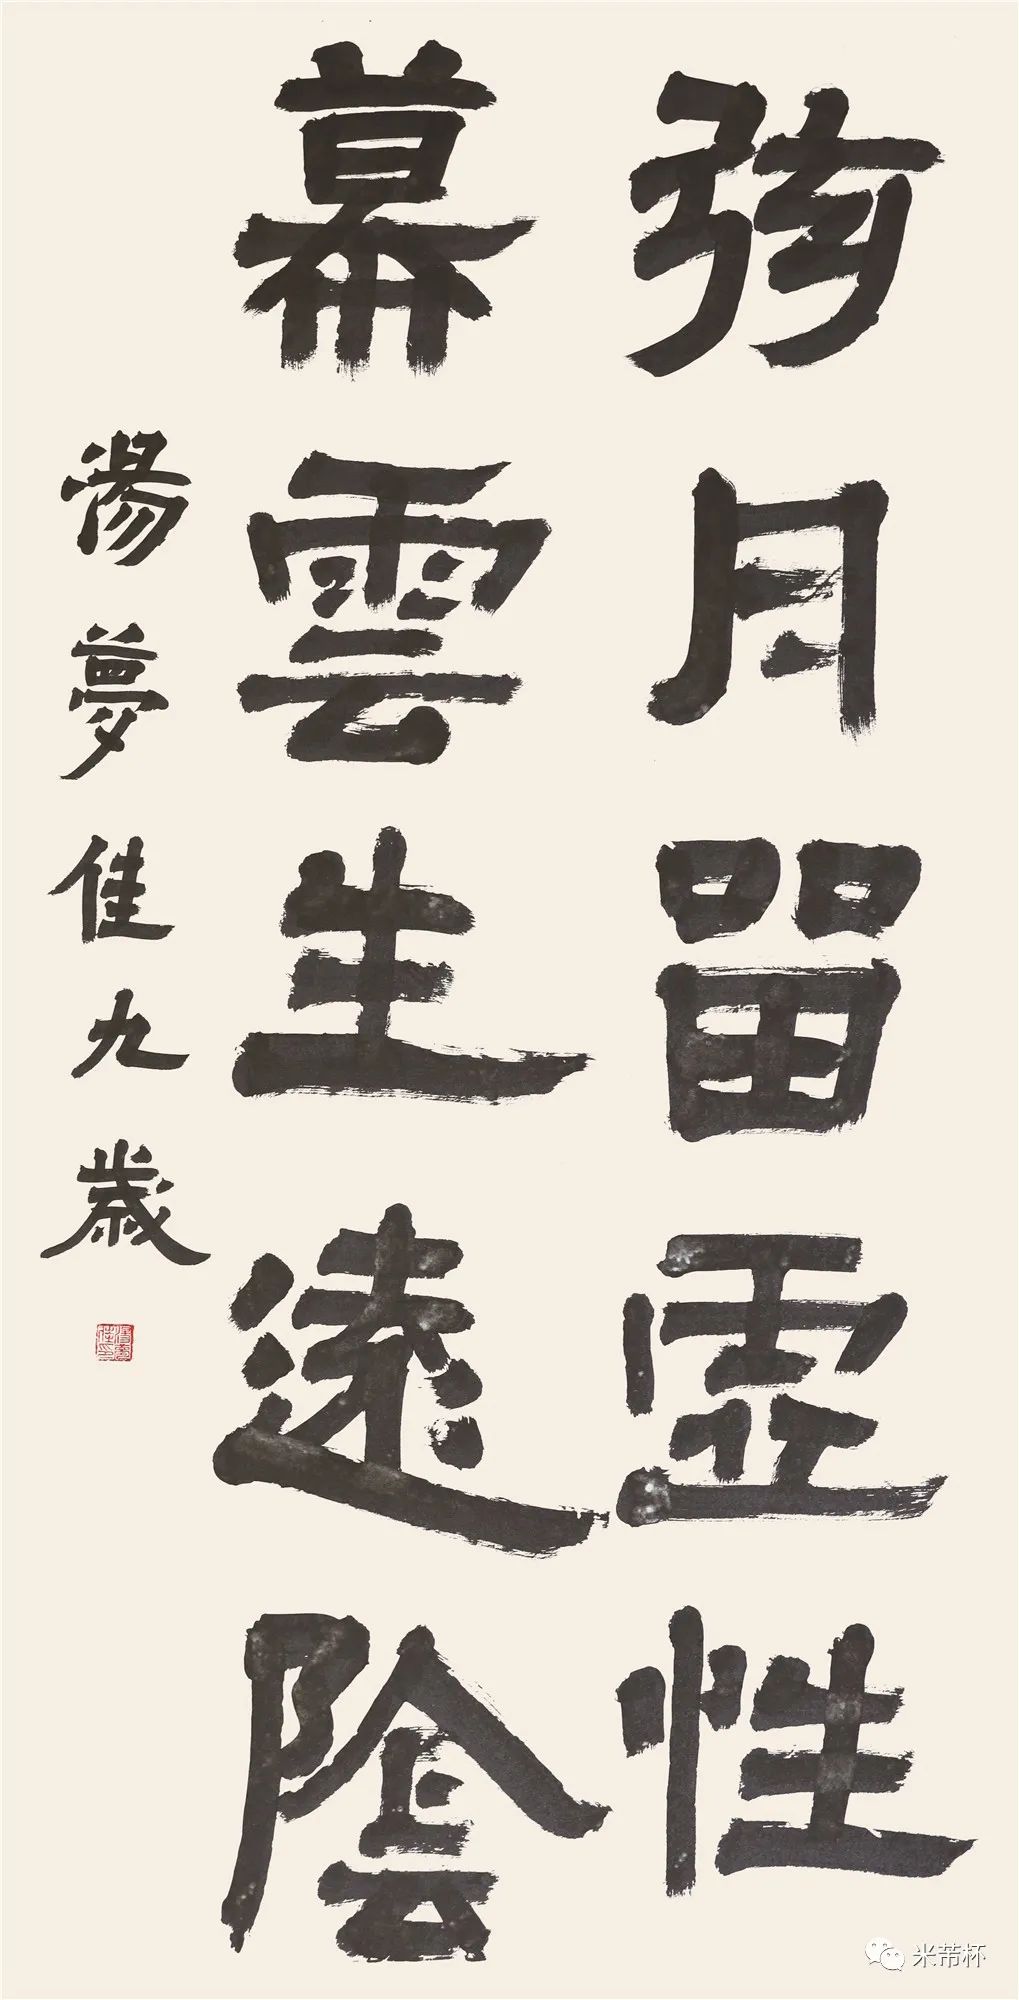 弦月留虛性
幕雲生遠陰
湯夢佳九歲
米芾杯